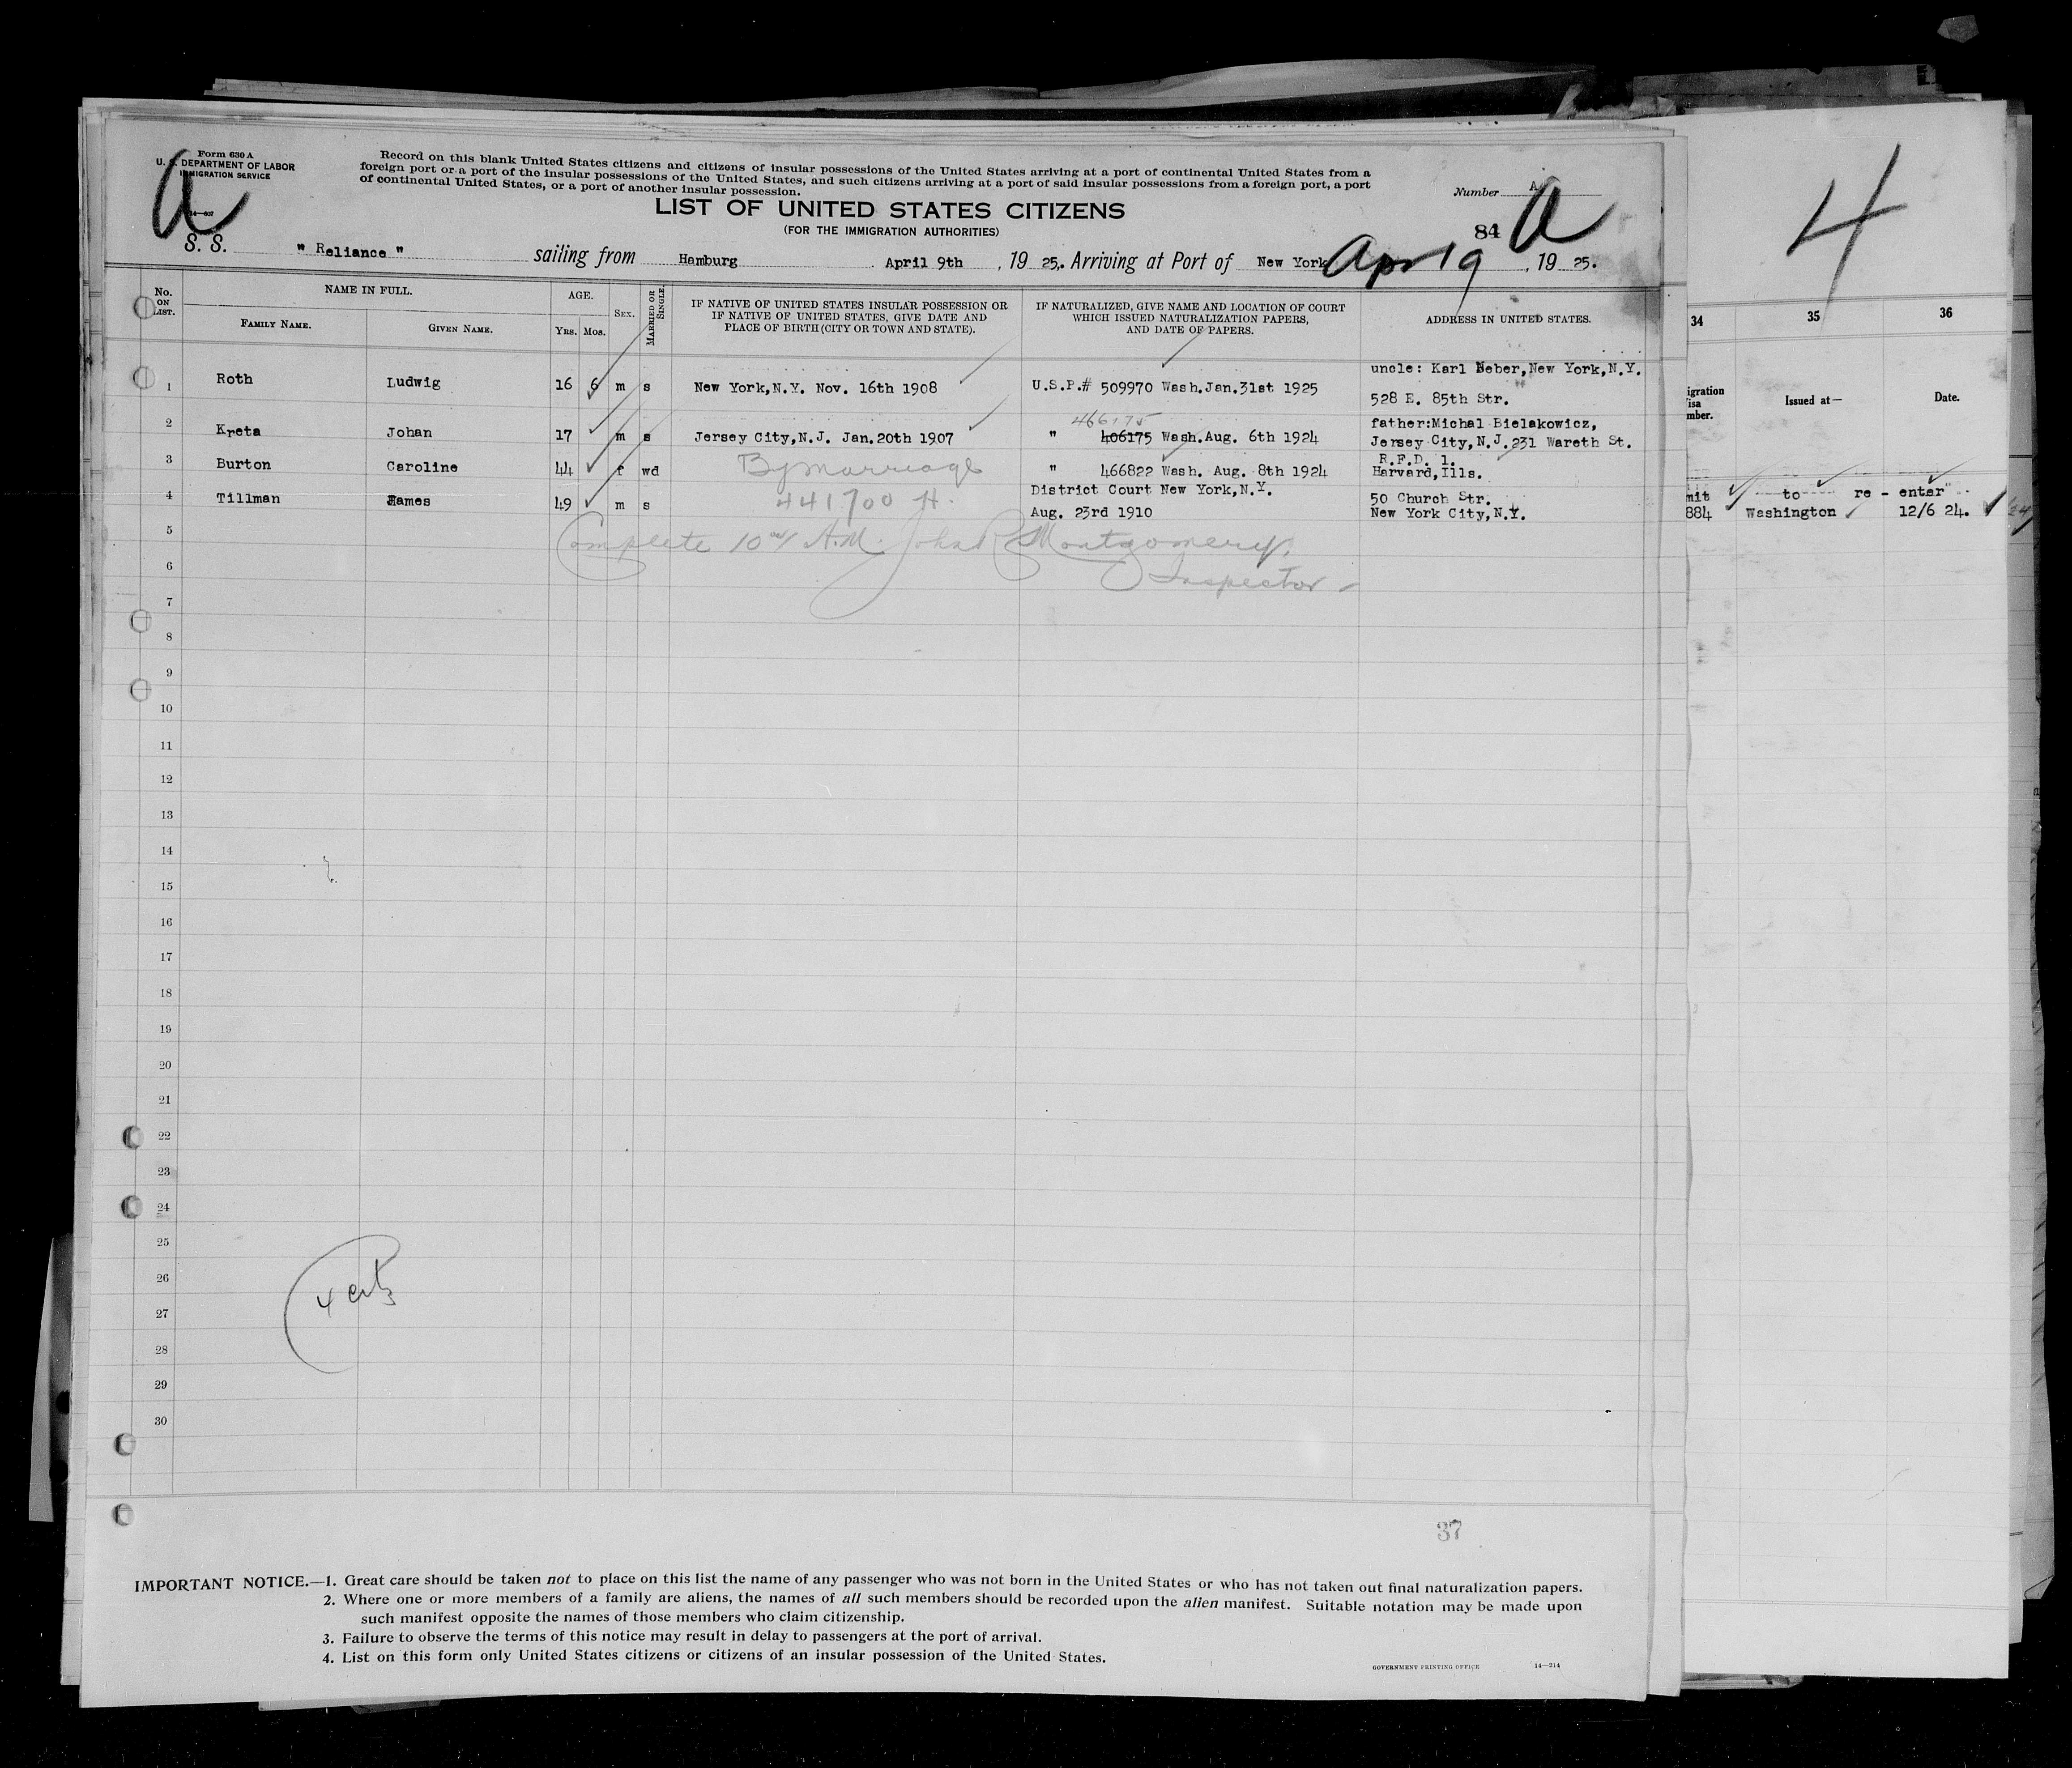 Form 630 A
U. S. DEPARTMENT OF LABOR
IMMIGRATION SERVICE
a
Record on this blank United States citizens and citizens of insular possessions of the United States arriving at a port of continental United States from a
foreign port or a port of the insular possessions of the United States, and such citizens arriving at a port of said insular possessions from a foreign port, a port
of continental United States, or a port of another insular possession.
Number A
LIST OF UNITED STATES CITIZENS
(FOR THE IMMIGRATION AUTHORITIES)
84 a
S. S. " Reliance " sailing from Hamburg April 9th , 19 25. Arriving at Port of New York Apr 19 , 19 25.
No. ON LIST. NAME IN FULL. AGE. SEX. MARRIED OR SINGLE.
FAMILY NAME. GIVEN NAME. YRS. MOS.
IF NATIVE OF UNITED STATES INSULAR POSSESSION OR
IF NATIVE OF UNITED STATES, GIVE DATE AND
PLACE OF BIRTH (CITY OR TOWN AND STATE).
IF NATURALIZED, GIVE NAME AND LOCATION OF COURT
WHICH ISSUED NATURALIZATION PAPERS,
AND DATE OF PAPERS.
ADDRESS IN UNITED STATES.
uncle: Karl Neber, New York, N.Y.
1 Roth Ludwig 16 6 m s New York, N.Y. Nov. 16th 1908 U.S.P.# 509970 Wash. Jan. 31st 1925
528 E. 85th Str.
466175
father: Michal Bielakowicz,
2 Kreta Johan 17 m s Jersey City, N.J. Jan. 20th 1907 " 406175 Wash. Aug. 6th 1924
Jersey City, N.J. 231 Wareth St.
R.F.D. 1.
3 Burton Caroline 44 f wd By marriage " 466822 Wash. Aug. 8th 1924 Harvard, Ills.
District Court New York, N.Y.
4 Tillman James 49 m s 441700 50 Church Str.
Aug. 23rd 1910 New York City, N.Y.
5
Complete 10 A.M. John R Montgomery,
6
Inspector
7
8
9
10
11
12
13
14
15
16
17
18
19
20
21
22
23
24
25
26
4 cits
27
28
29
30
37
IMPORTANT NOTICE.—1. Great care should be taken not to place on this list the name of any passenger who was not born in the United States or who has not taken out final naturalization papers.
2. Where one or more members of a family are aliens, the names of all such members should be recorded upon the alien manifest. Suitable notation may be made upon
such manifest opposite the names of those members who claim citizenship.
3. Failure to observe the terms of this notice may result in delay to passengers at the port of arrival.
4. List on this form only United States citizens or citizens of an insular possession of the United States.
GOVERNMENT PRINTING OFFICE 14—214
4
34 35 36
igration
isa
mber.
Issued at—
Date.
mit to re - enter"
884 Washington 12/6 24.